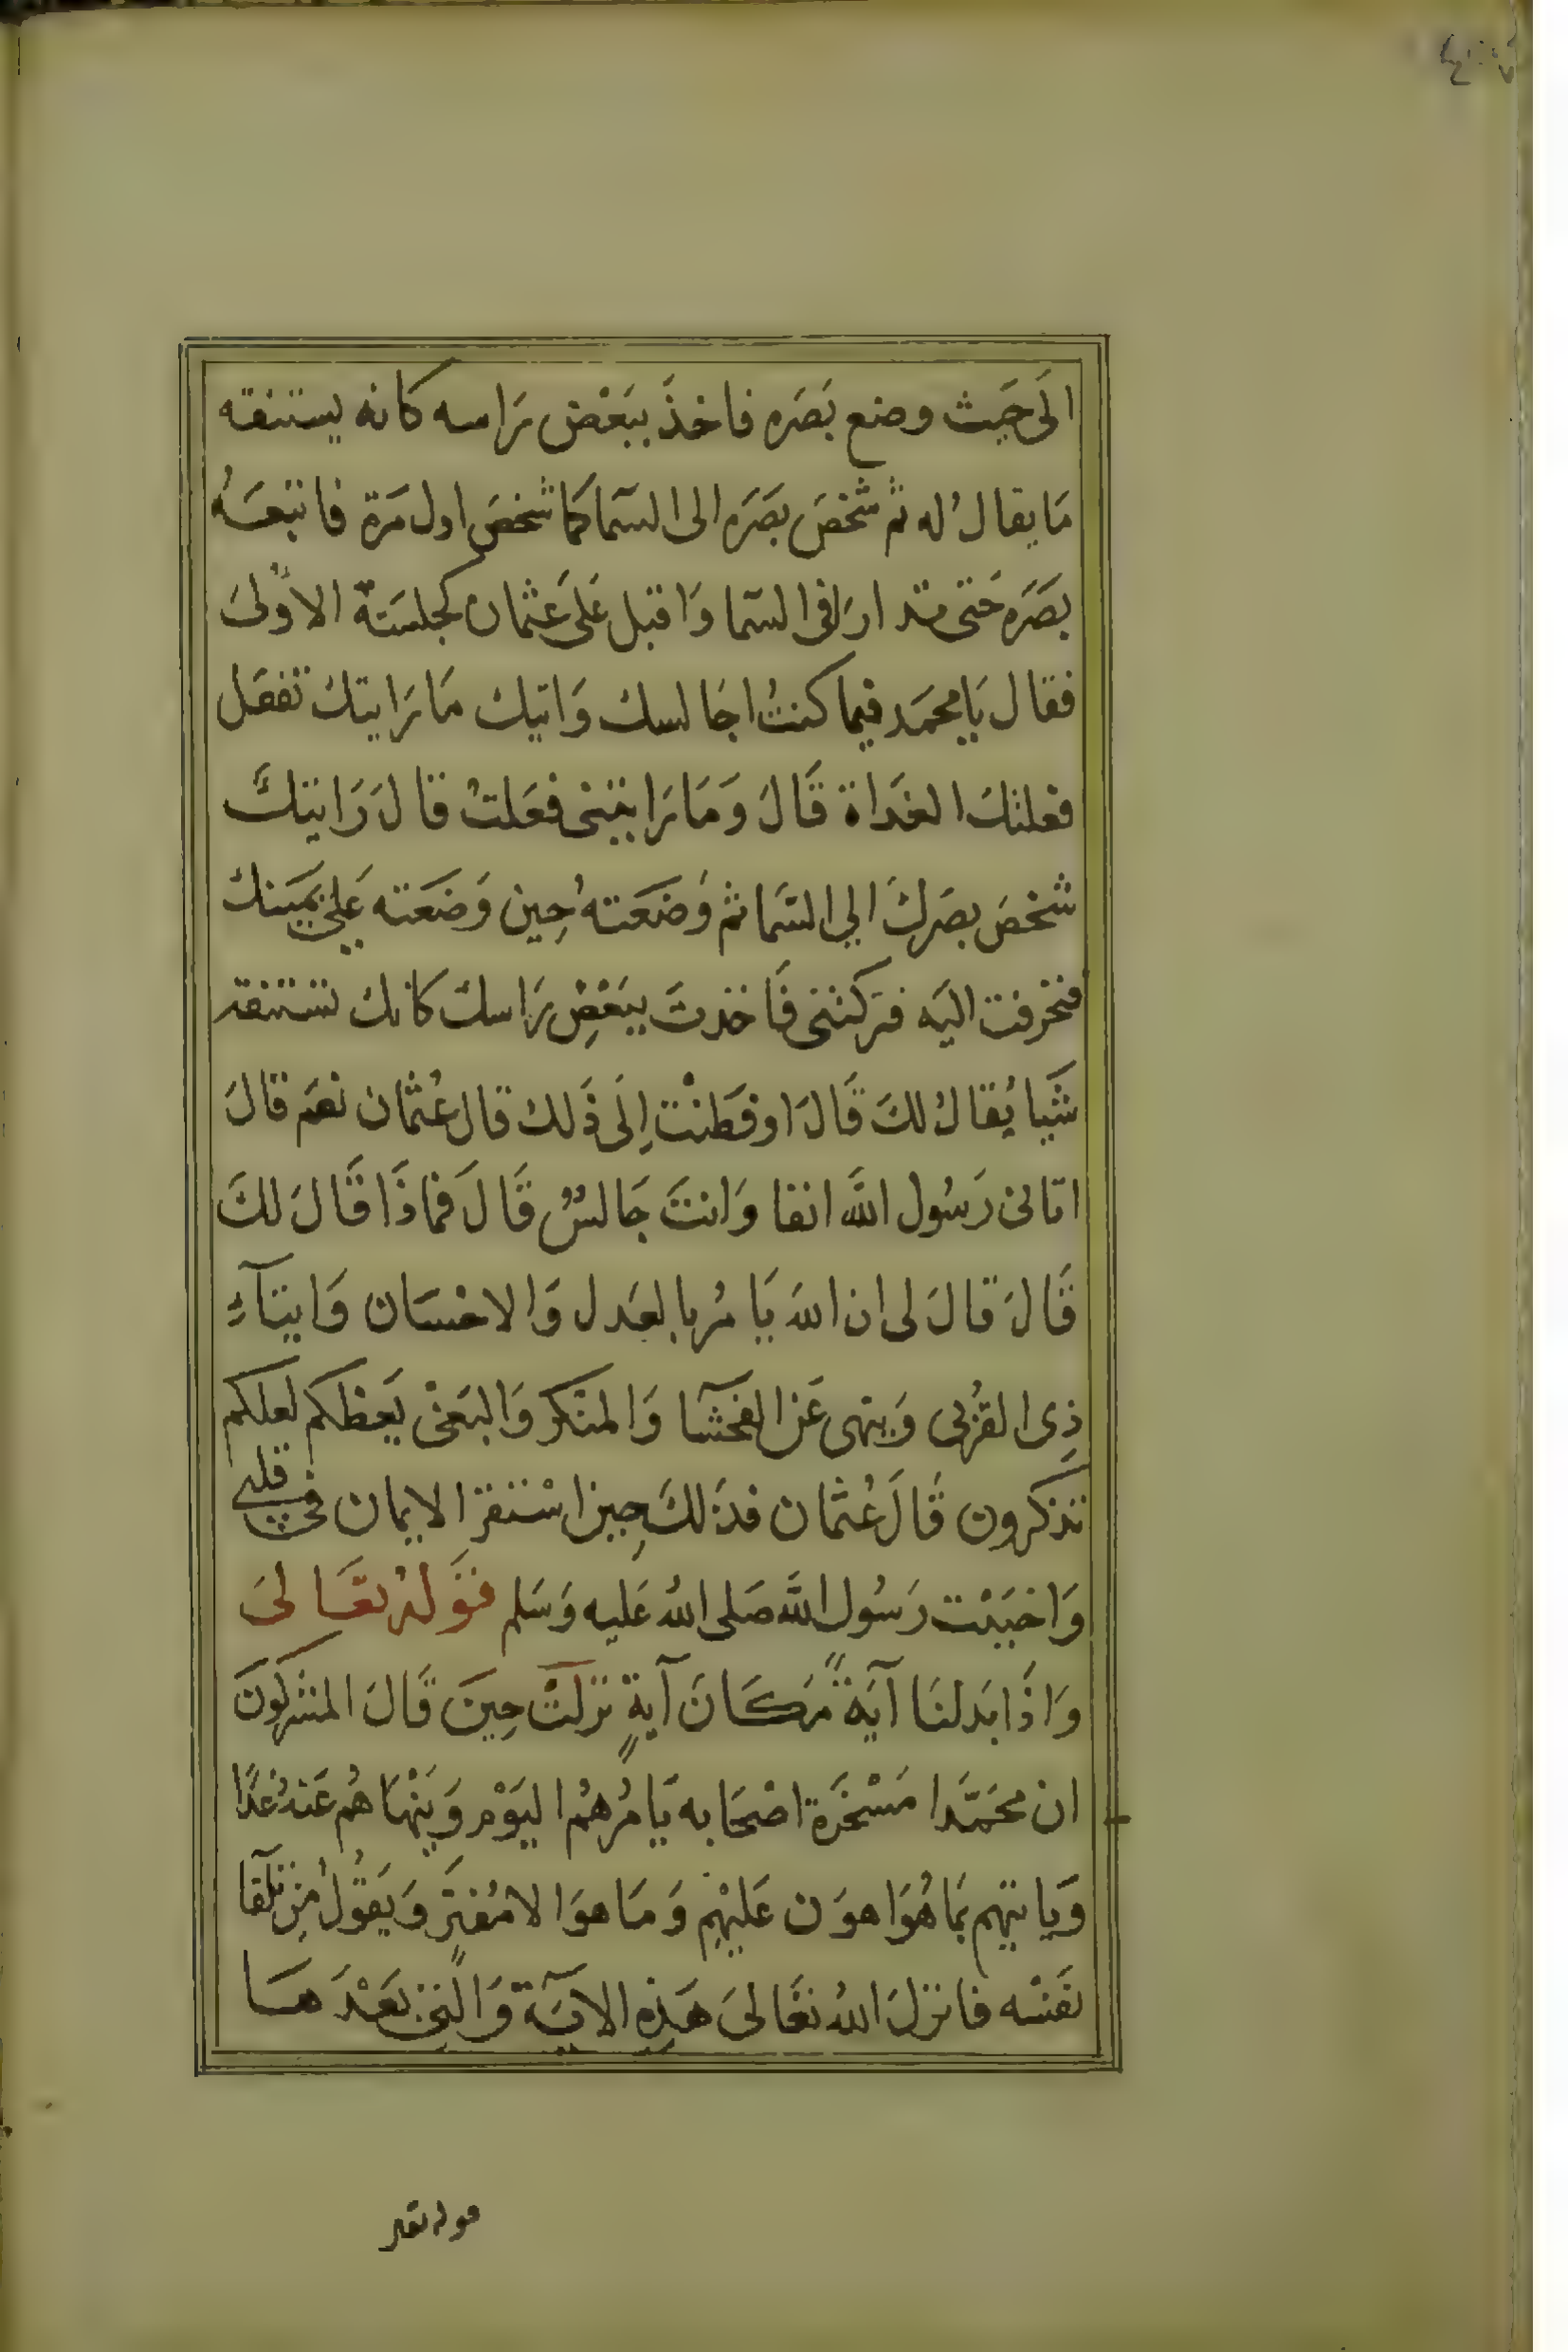 الَى حَيث وضع بَصَره فاخذَ ببَغْض رَاسه كانه يستنقه
مَا يقال ُله ثم شَخصَ بَصَرَه الى السَما كمَا شخصَ اول مَرة فاتبعَهُ
بصَرَه حَتى تدارَا فى السَما وَاقبل عَلى عَثمان كجلسَتة الاوُلىَ
فقال يَا محمَد فيما كنتُ اجَالسك وَاتيك مَا رَايتك تفعَل
فعلتك الغَداة قَالَ وَمَا رَايتنى فعَلتُ قالَ رَايتكَ
شخصَ بصَركَ الي السَما ثم وَضعَتهُ حِين وَضعَته عَلى يمَينك
فتخرفت اليَه فتركتنى فَاخذتَ ببَغْضِ رَاسك كانك تستنقه
شَيا يُقالُ لكَ قَالَ اوفطَنْت اِلَى ذَلك قال عُثمان نعَم قالَ
اتانى رَسُول اللَّه انفا وَانتَ جَالسٌ قَالَ فمَاذَا قَالَ لكَ
قَالَ قالَ لى ان اللهَ يَامُر بالعَدل وَالاحْسَان وَايتَآءِ
ذِى القُربى وَينهى عَن الفحشَآ وَالمنْكر وَالبَغى يَعظكم لعلكم
تذكرون قَالَ عُثمان فذَلكَ حِين اسْتقر الايمان فى قلبى
وَاحَببْت رَسُول اللَّه صَلى اللهُ عَليه وَسَلم قوَلهُ تعَالىَ
وَاذَا بَدلنَا آيَةً مَكَانَ آيةٍ نَزلَتْ حِينَ قَالَ المشركونَ
ان محمَّدا مَسْخَرة اصْحَابه يَامُرهُم اليَوْم وَيَنْهَاهُم عَنهُ غدًا
وَياتيهم بمَا هُوَ اهوَن عَليْهِم وَمَا هوَ الا مُفتَرٍ وَيَقوُلُ مِن تلقا
نفَسْه فانزلَ اللهُ تعَالىَ هَذِه الايَة وَالتى بَعَدَهَا